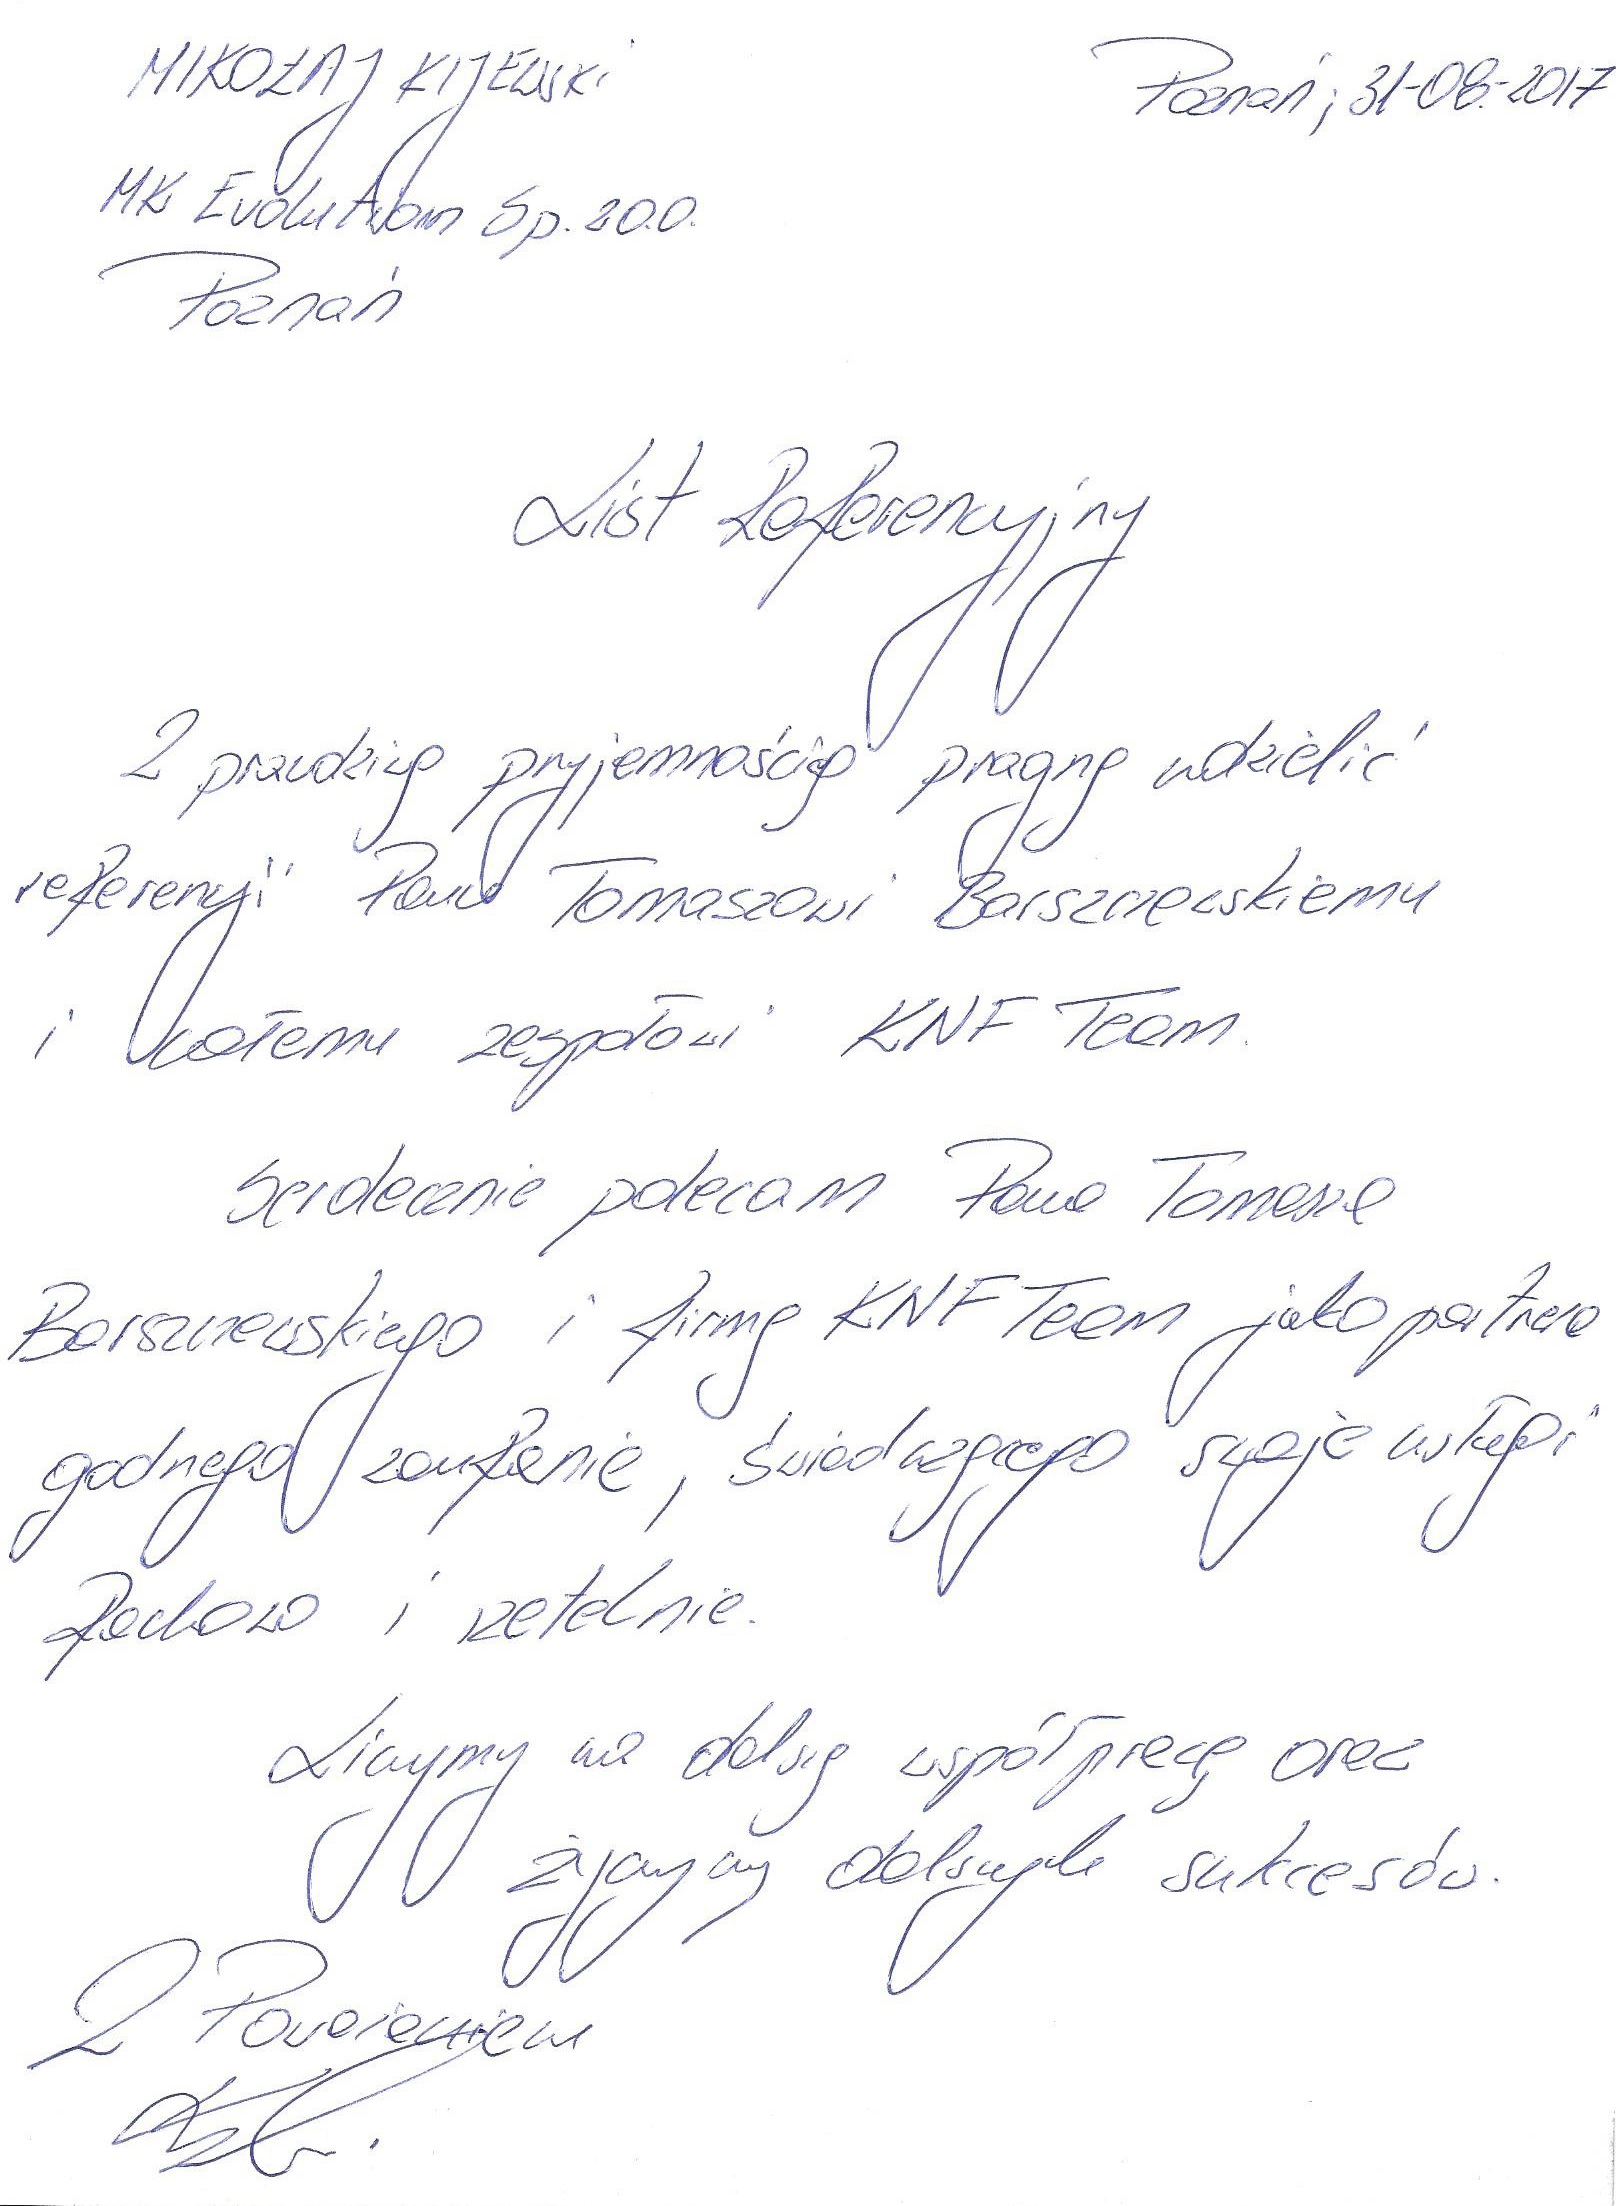 MIKOŁAJ KIJEWSKI
Poznań, 31-08-2017
MK Evolution Sp. z o.o.
Poznań
List Referencyjny
Z prawdziwą przyjemnością pragnę udzielić
referencji Panu Tomaszowi Barszczewskiemu
i całemu zespołowi KNF Team.
Serdecznie polecam Pana Tomasza
Barszczewskiego i firmę KNF Team jako partnera
godnego zaufania, świadczącego swoje usługi
fachowo i rzetelnie.
Liczymy na dalszą współpracę oraz
życzymy dalszych sukcesów.
Z Poważaniem